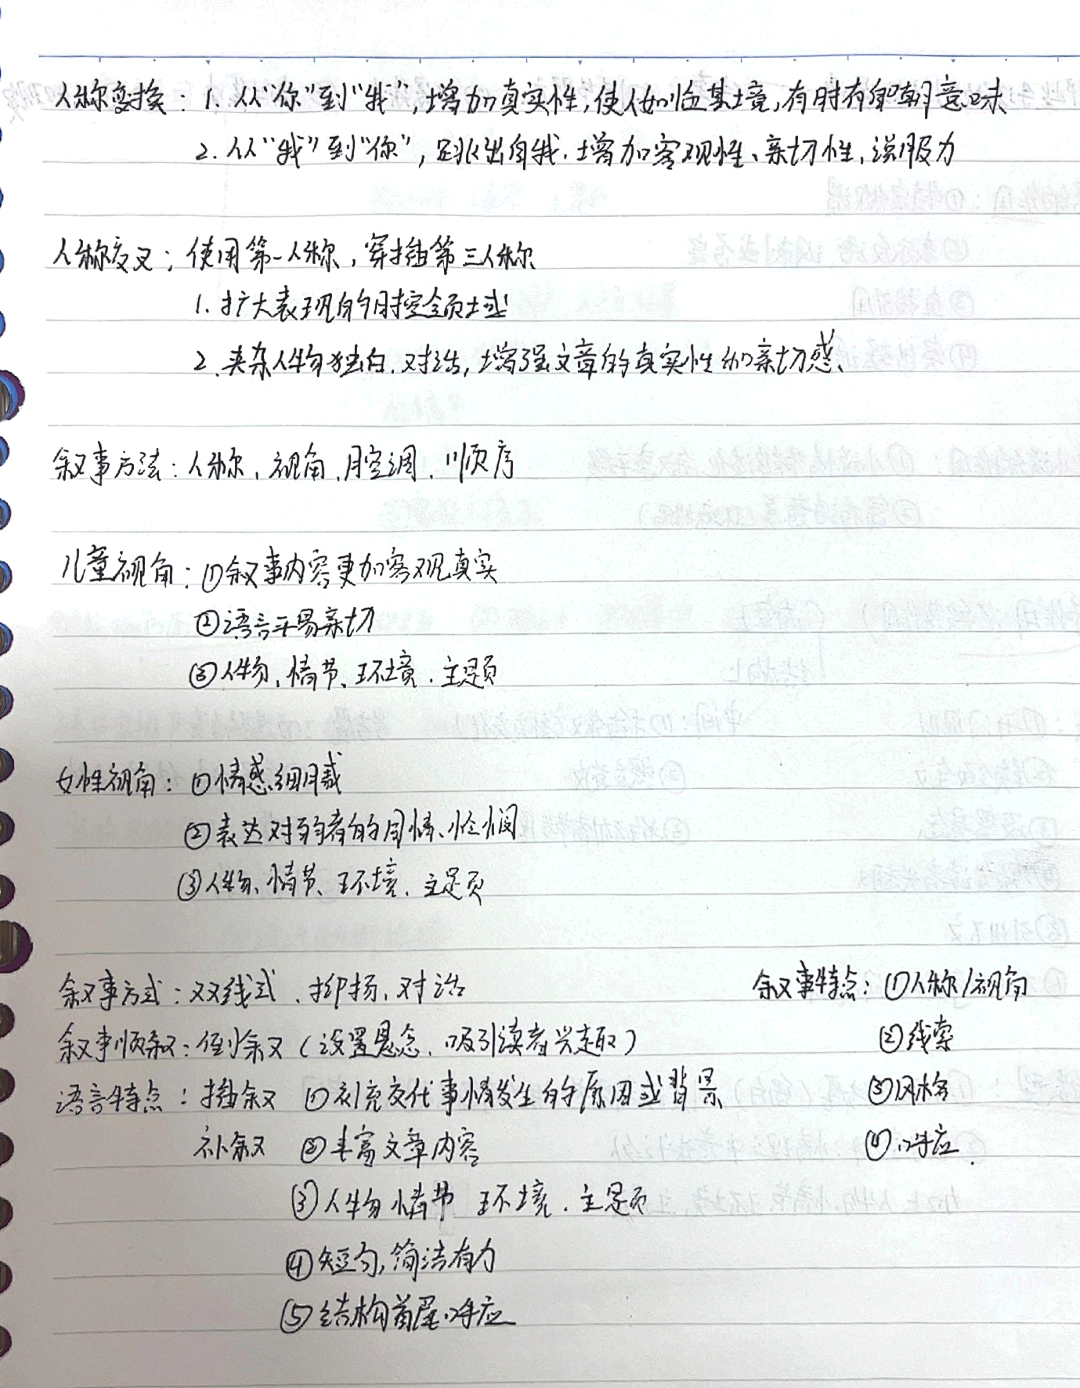 人称变换：1. 从“你”到“我”，增加真实性，使人如临其境，有时有自嘲意味
2. 从“我”到“你”，跳出自我，增加客观性、亲切性，说服力
人称交叉：使用第一人称，穿插第三人称
1. 扩大表现的时空领域
2. 夹杂人物独白、对话，增强文章的真实性和亲切感、
叙事方法：人称、视角、腔调、顺序
儿童视角：①叙事内容更加客观真实
②语言平易亲切
③人物、情节、环境、主题
女性视角：①情感细腻
②表达对弱者的同情、怜悯
③人物、情节、环境、主题
叙事方式：双线式、抑扬、对话
叙事顺叙：倒叙（设置悬念、吸引读者兴趣）
语言特点：插叙 ①补充交代事情发生的原因或背景
补叙 ②丰富文章内容
③人物 情节 环境、主题
④短句，简洁有力
⑤结构首尾呼应
叙事特点：①人称/视角
②线索
③风格
④呼应